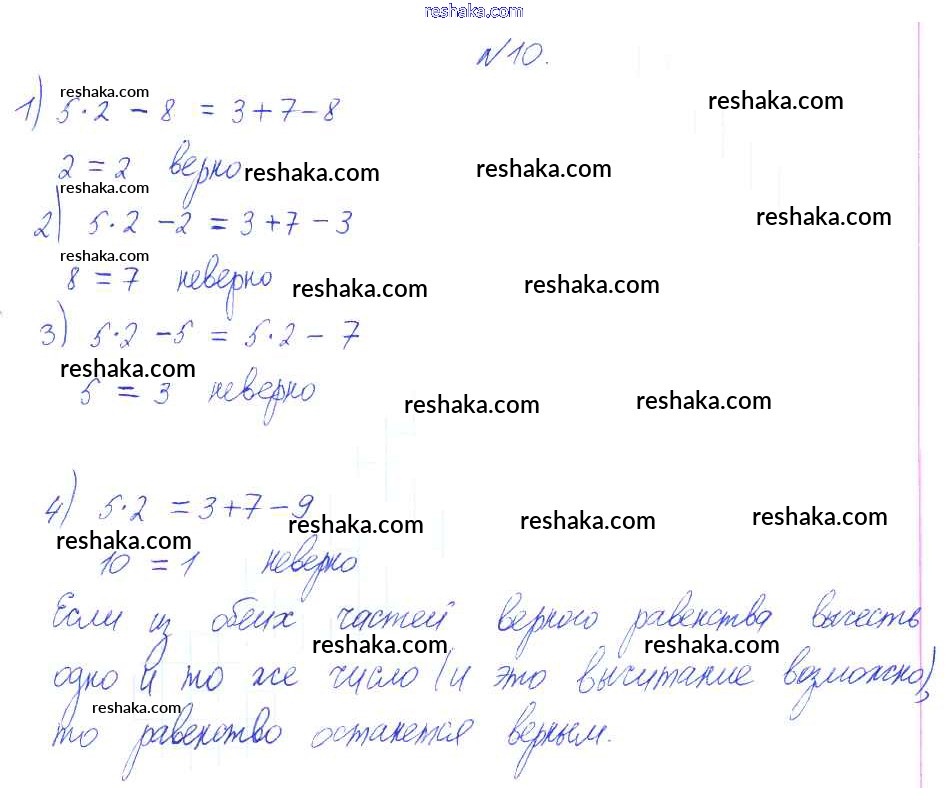 reshaka.com
№10.
reshaka.com
1) 5·2 - 8 = 3+7-8
reshaka.com
2 = 2 верно
reshaka.com
reshaka.com
reshaka.com
2) 5·2 -2 = 3+7-3
reshaka.com
reshaka.com
8 = 7 неверно
reshaka.com
reshaka.com
3) 5·2 -5 = 5·2 - 7
reshaka.com
5 = 3 неверно
reshaka.com
reshaka.com
4) 5·2 = 3+7-9
reshaka.com
reshaka.com
reshaka.com
reshaka.com
10 = 1 неверно
Если из обеих частей верного равенства вычесть
reshaka.com
reshaka.com
одно и то же число (и это вычитание возможно),
reshaka.com
то равенство останется верным.